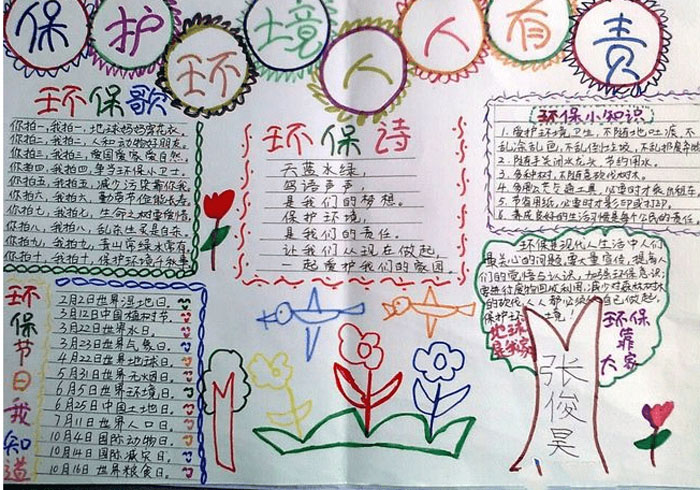 保护环境人人有责
环保歌
你拍一,我拍一,地球妈妈穿花衣。
你拍二,我拍二,人和动物好朋友。
你拍三,我拍三,爱国爱家爱自然。
你拍四,我拍四,争当环保小卫士。
你拍五,我拍五,减少污染靠你我。
你拍六,我拍六,勤俭节俭能长久。
你拍七,我拍七,生命之树要爱惜。
你拍八,我拍八,乱杀生灵是自杀。
你拍九,我拍九,青山常绿水常有。
你拍十,我拍十,保护环境千秋事
环保诗
天蓝水绿,
鸟语声声,
是我们的梦想。
保护环境,
是我们的责任。
让我们从现在做起,
一起爱护我们的家园。
环保小知识
1.爱护环境卫生,不随地吐痰,不
乱涂乱画,不乱扔垃圾,不乱扔废弃物
2.随手关闭水龙头,节约用水。
3.多种树,不随意砍伐树木。
4.多用公交交通工具,必要时才乘出租车。
5.节省用纸,必要时才影印或打印。
6.养成良好的生活习惯是每个公民的责任。
环保节日我知道
2月2日世界湿地日。
3月12日中国植树节。
3月22日世界水日。
3月23日世界气象日。
4月22日世界地球日。
5月31日世界无烟日。
6月5日世界环境日。
6月25日中国土地日。
7月11日世界人口日。
10月4日国际动物日。
10月14日国际减灾日。
10月16日世界粮食日。
环保是现代人生活中人们
最关心的问题,要大量宣传,提高人
们的觉悟与认识,加强环保意识;
要进行废物回收利用;减少对森林树木
的砍伐,人人都必须从自己做起,
保护环境!
地球是我家
环保靠大家
张俊昊